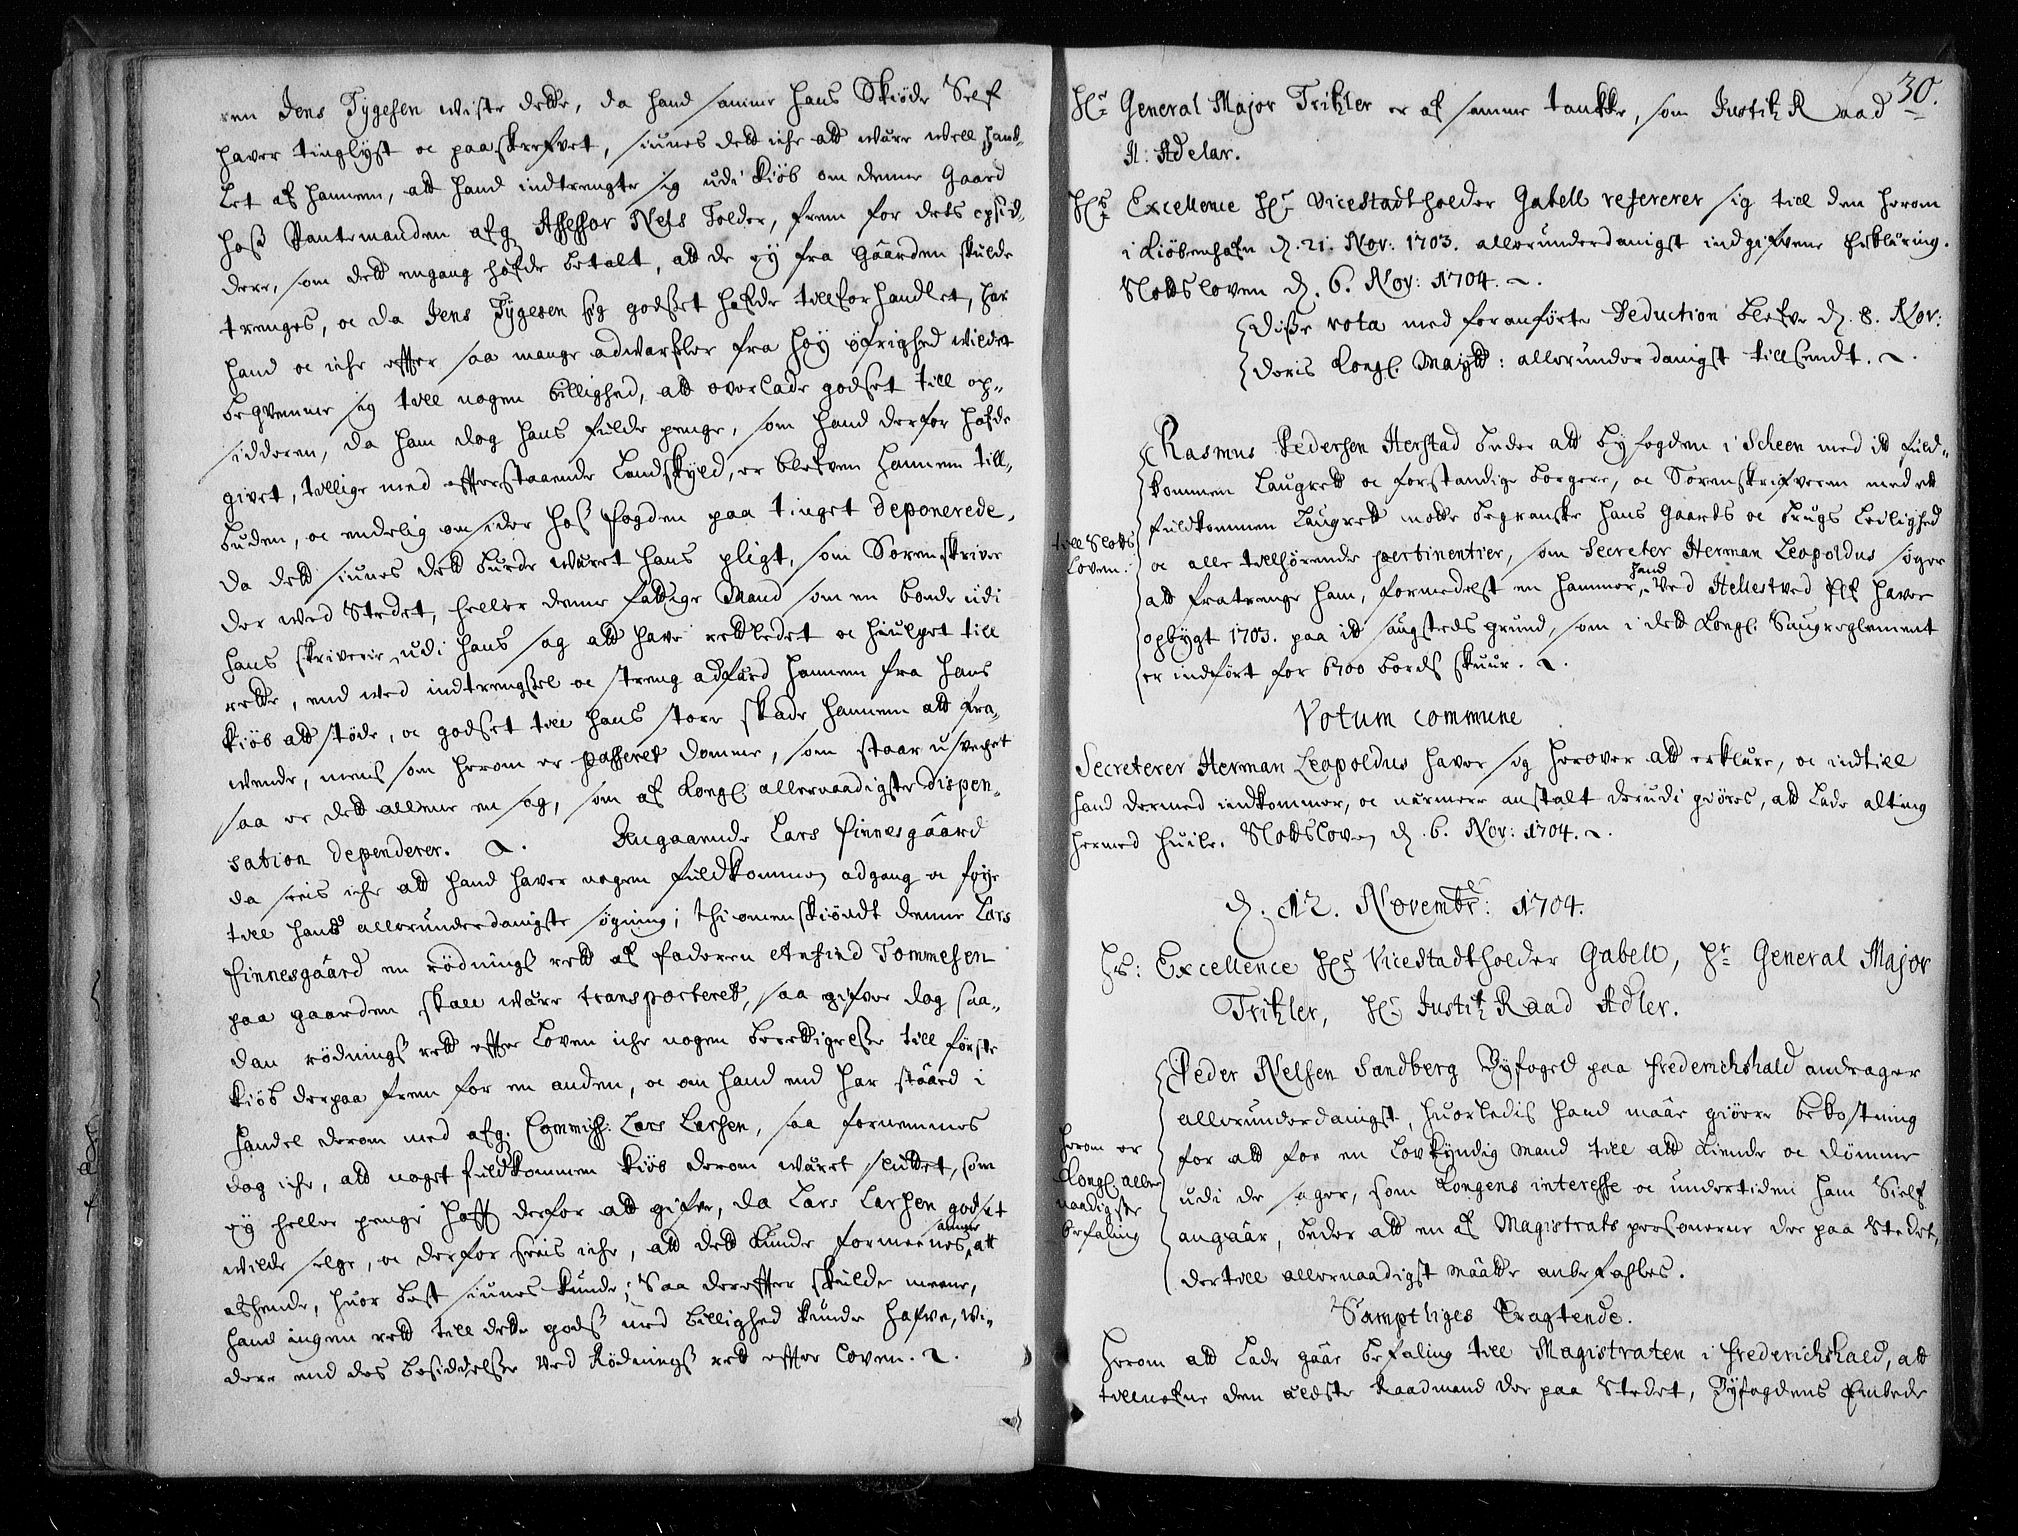 ren Jens Tygesen viste dette, da hand samme hans Skiøde Self
haver tinglyst oc paaskrefvet, siunes dett iche att være vell hand-
let af hannem, att hand indtrengte sig udi kiøb om denne Gaard
hoss Pantemanden afg Assessor Nels Tolder, frem for dets opsid-
dere, som dett engang hafde betalt, att de ey fra Gaarden skulde
trenges, oc da Jens Tygesen sig godset hafde tillforhandlet, har
hand oc iche effter saa mange advarsler fra høy øfrighed vildet
beqvemme sig till nogen billighed, att overlade godset till op-
sidderen, da ham dog hans fulde penge, som hand derfor hafde
givet, tillige med efterstaaende Landskyld, er blefven hannem till-
buden, oc endelig omsider hos fogden paa tinget deponerede,
da dett siunes dett burde været hans pligt, som Sorenskriver
der ved Stedet, heller denne fattige Mand som en bonde udi
hans skriverie, udi hans sag att have rettledet oc hiulpet till
rette, end ved indtrengsel oc streng adfærd hannem fra hans
kiøb att støde, oc godset till hans store skade hannem att fra-
vende, mens som herom er passeret domme, som staar usvechet
saa er dett allene en sag, som af Kongl allernaadigste dispen-
sation dependerer. Angaaende Lars Finnesgaard
da sees iche att hand haver nogen fuldkommen adgang oc føye
till hans allerunderdanigste søgning; thi omenskiøndt denne Lars
Finnesgaard en rødnings rett af faderen Anfind Tommesen
paa gaarden skall være transporteret, saa gifver dog saa-
dan rødnings rett effter Loven iche nogen berettigelse till første
kiøb derpaa frem for en anden, oc om hand end har staaed i
handel derom med afg. Commiss: Lars Larsen, saa fornemmes
dog iche, att noget fuldkommen kiøb derom været sluttet, som
ey heller penge hafft derfor att gifve, da Lars Larsen godset
vilde selge, oc derfor sees iche, att dett kunde formeenes samme att
afhende, huor best siunes kunde; Saa dereffter skulde meene,
hand ingen rett till dette gods med billighed kunde hafve, vi-
dere end des besiddelse ved Rødnings rett effter Loven.
30.
Hr General Major Tritzler er af samme tankke, som Justitz Raad
H: Adelar.
Hs Excellence Hr Vicestadtholder Gabell refererer sig till den herom
i Kiøbenhafn d. 21. Nov: 1703. allerunderdanigst indgifvene Erklæring.
Slottsloven d. 6. Nov: 1704.
Disse vota med foranførte Deduction blefve d. 8. Nov:
deris Kongl. Maytt: allerunderdanigst tillsendt.
till Slotts
Loven.
Rasmus Pedersen Herstad beder att byfogden i Scheen med it fuld-
kommen Laugrett oc forstandige borgere, oc Sorenskrifveren med ett
fuldkommen Laugrett motte begranske hans Gaards oc brugs Leilighed
oc alle tilhørende pertinentier, som Secreter Herman Leopoldus søger
att fratrenge ham, formedelst en hammer, hand ved Hellestved Elf haver
opbygt 1703. paa itt saugsteds grund, som i dett Kongl. Saugreglement
er indført for 6700 bords skuur.
Votum commune
Secreterer Herman Leopoldus haver sig herover att erklære, oc indtill
hand dermed indkommer, oc nærmere anstalt derudi giøres, att lade alting
hermed huile. Slottsloven d. 6. Nov: 1704.
d. 12. Novembr: 1704.
Hs: Excellence Hr Vicestadtholder Gabell, Hr General Major
Tritzler, Hr Justitz Raad Adler.
herom er
Kongl. aller
naadigste
befaling
Peder Nelsen Sandberg Byfoged paa Frederichshald andrager
allerunderdanigst, huorledis hand maae giøre bekostning
for att foe en Lovkyndig Mand till att kiende oc dømme
udi de sager, som Kongens interesse oc undertiden ham Sielf
angaar, beder att en af Magistrats personerne der paa Stedet,
dertill allernaadigst maatte anbefahles.
Samptliges Eragtende.
Herom att lade gaae befaling till Magistraten i Frederichshald, att
tillnefne den ældste Raadmand der paa Stedet, Byfogdens Embede